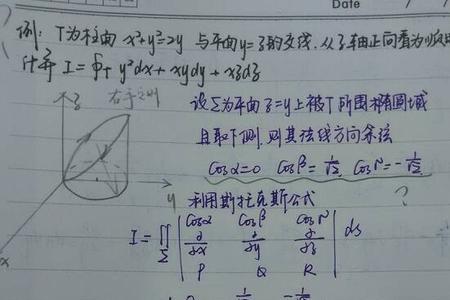 Date
例: T为柱面 x²+y²=2y 与平面y=z的交线,从z轴正向看为顺时
计算 I = ∮T y²dx + xydy + xzdz
z 右手之则
设Σ为平面z=y上被T所围椭圆域
且取下侧,则其法线方向余弦
Cosα=0 Cosβ=1/√2 Cosγ=-1/√2
y 利用斯托克斯公式 ?
I = ∬Σ | Cosα Cosβ Cosγ | ds
∂/∂x ∂/∂y ∂/∂z
P Q R
x